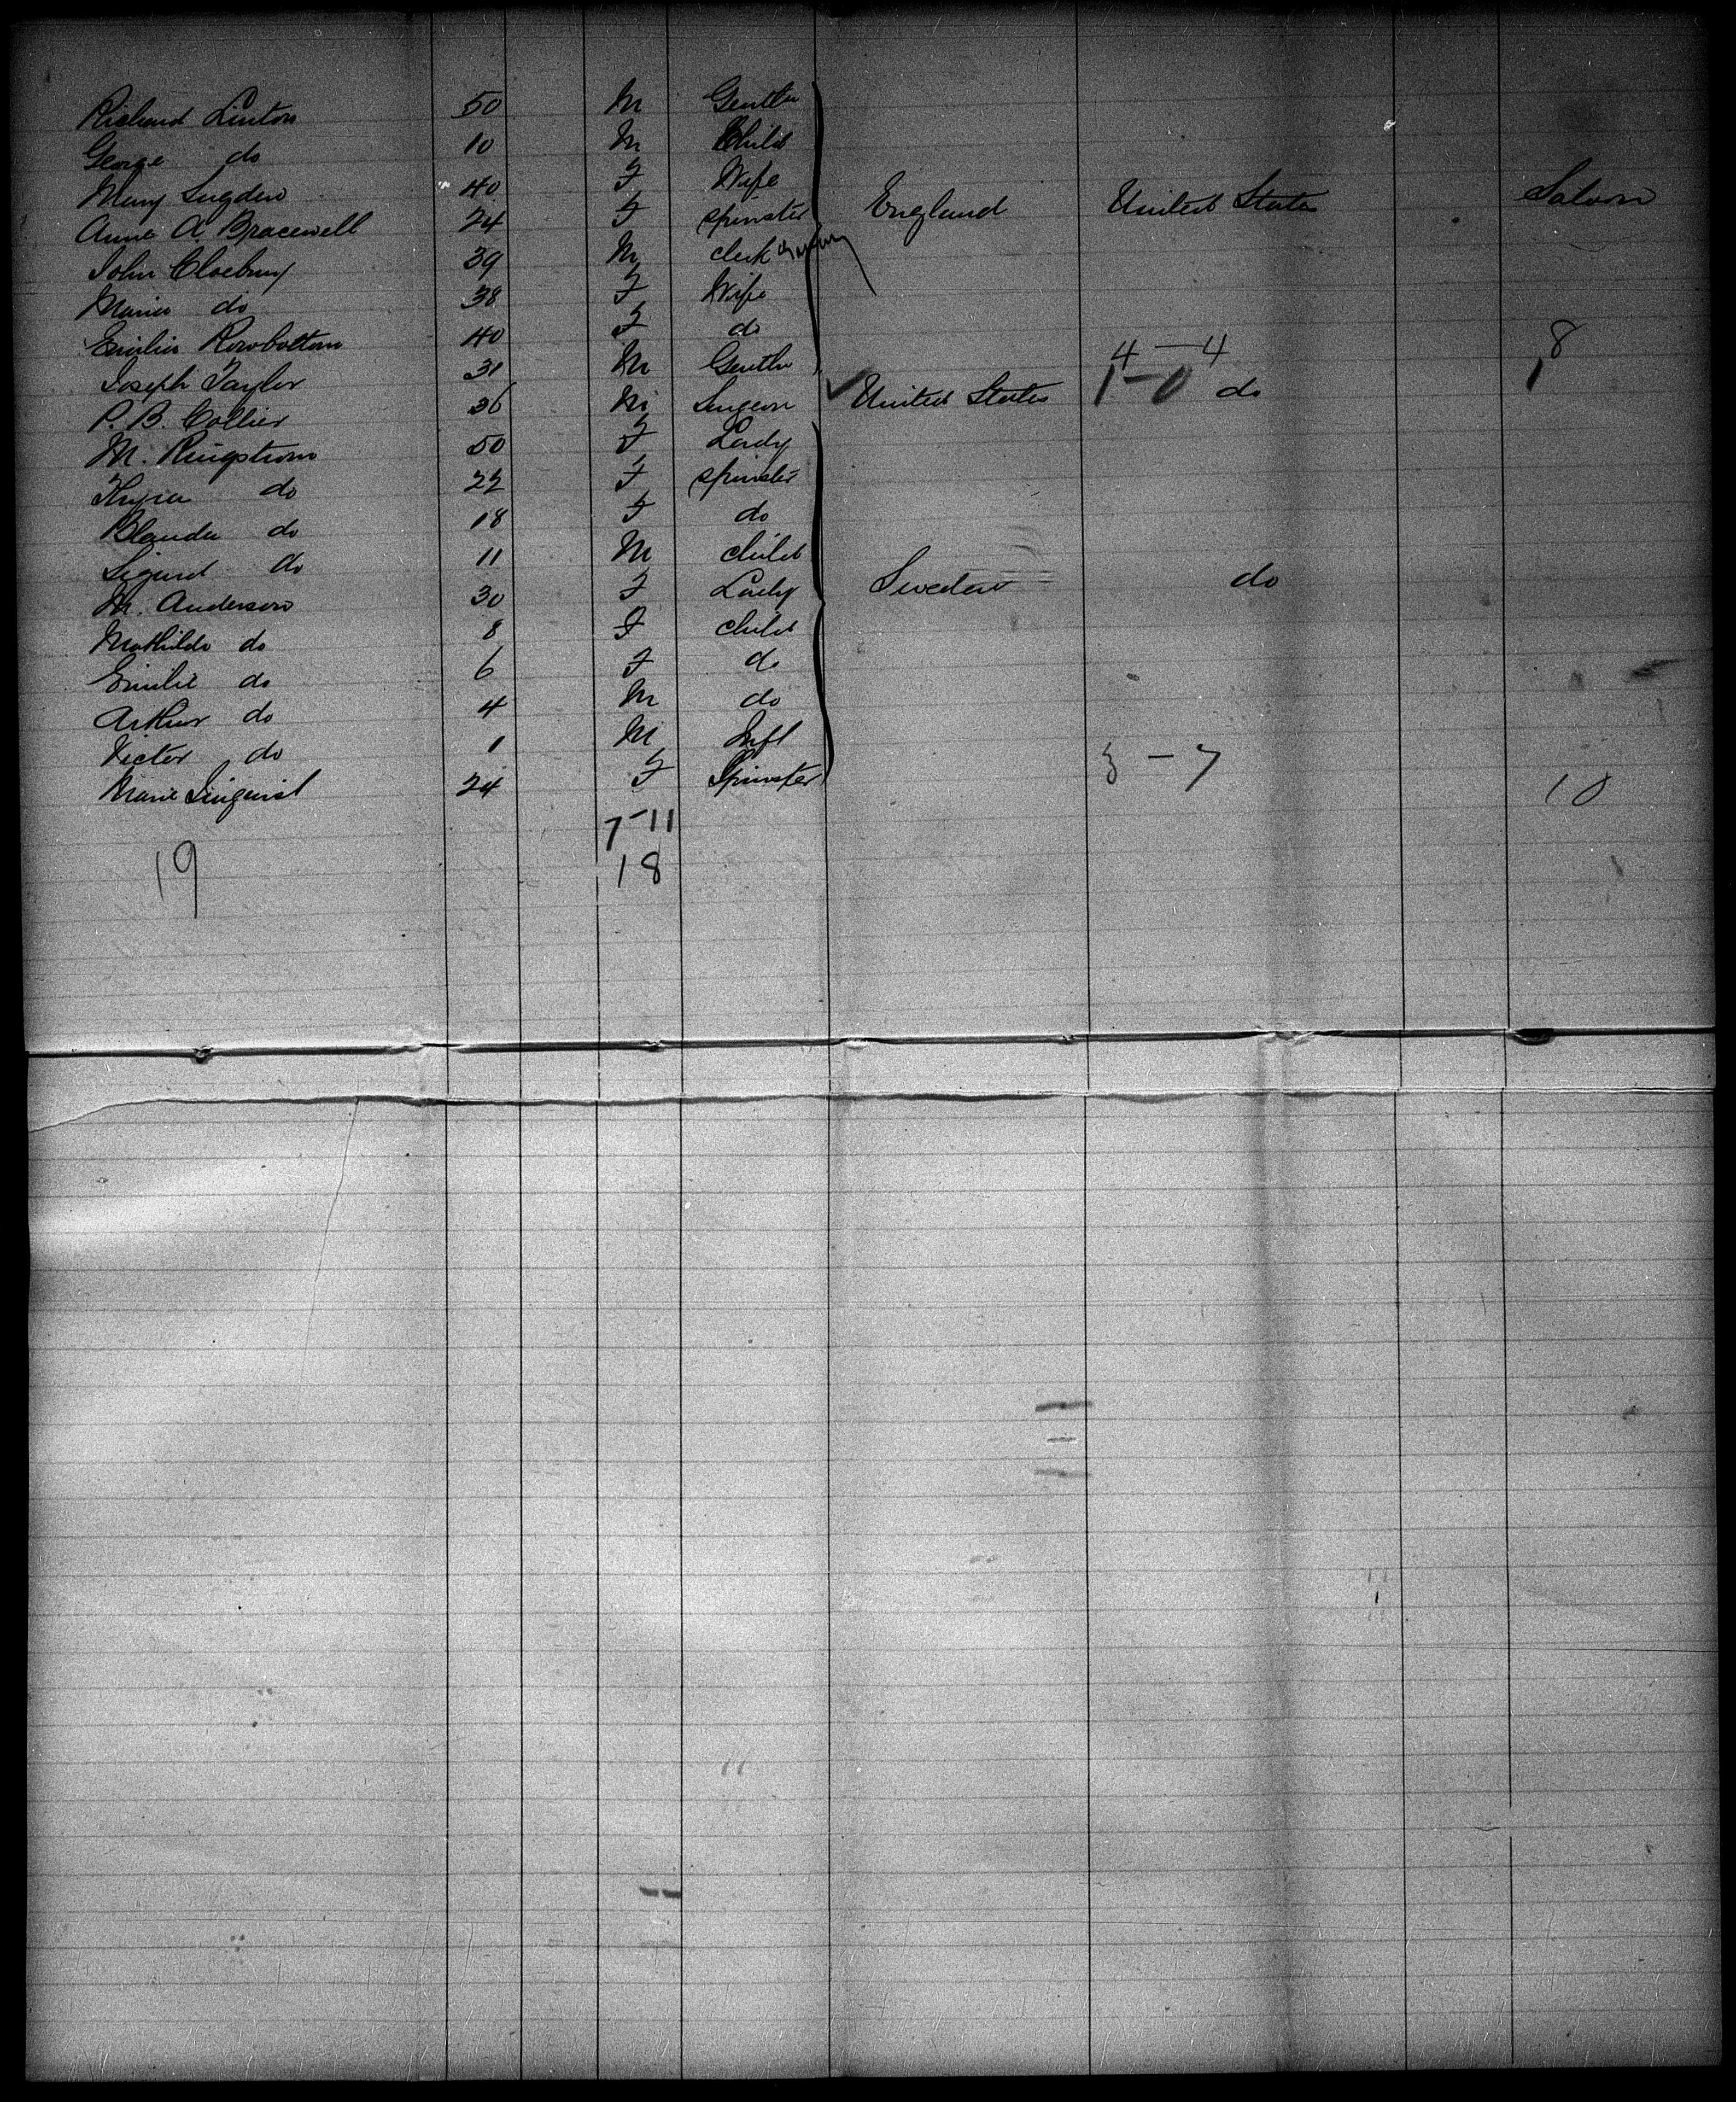 Richard Linton 50 M Gentln
George do 10 M Child
Mary Sugden 40 F Wife England United States Saloon
Anne A. Bracewell 24 F spinster
John Cloebury 39 M clerk
Maria do 38 F Wife
Emilia Rowbottom 40 F do
Joseph Taylor 31 M Gentln 4 - 4 8
P. B. Collier 36 M Surgeon United States 1 - 0 do 1
M. Ringstrom 50 F Lady
Thyra do 22 F spinster
Blanda do 18 F do
Sigurd do 11 M child
M. Anderson 30 F Lady Sweden do
Mathilde do 8 F child
Emilie do 6 F do
Arthur do 4 M do
Victor do 1 M Inft
Marie Linquist 24 F Spinster 3 - 7 10
7-11
19 18